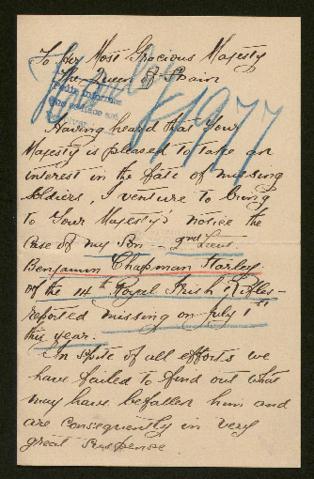 To Her Most Gracious Majesty
The Queen of Spain
F 1977
Having heard that Your
Majesty is pleased to take an
interest in the fate of missing
Soldiers, I venture to bring
to Your Majesty's notice the
case of my Son - 2nd Lieut.
Benjamin Chapman Starley
of the 14th Royal Irish Rifles -
reported missing on July 1st
this year.
In spite of all efforts we
have failed to find out what
may have befallen him and
are consequently in very
great suspense